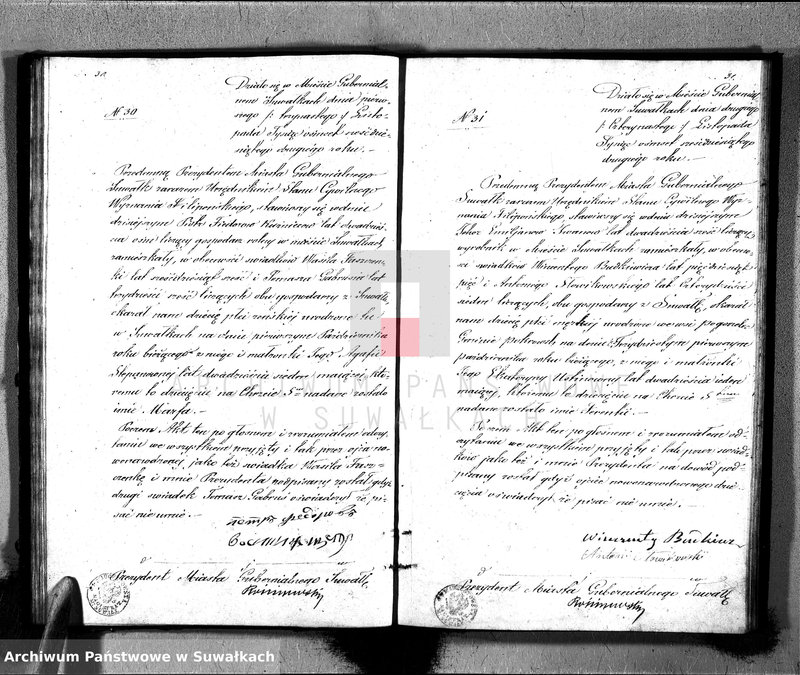 30.
N. 30
Działo się w Mieście Gubernial-
nem Suwałkach dnia pierw-
nego Listo-
pada Tysiąc ośmset sześćdzie-
siątego drugiego roku. —
Przedemną Prezydentem Miasta Gubernialnego
Suwałk zarazem Urzędnikiem Stanu Cywilnego
Wyznania Filipońskiego, stawiwszy się w dniu
dzisiejszym Piotr lat dwadzieś-
cia ośm liczący gospodarz rolny w mieście Suwałkach
zamieszkały, w obecności świadków Wasila
lat sześćdziesiąt sześć i Tomasza Gabrusia lat
trzydzieści sześć liczących obu gospodarzy z Suwałk
okazał nam dziecię płci żeńskiej urodzone tu
w Suwałkach na dniu pierwszym Października
roku bieżącego z niego i małżonki Jego Agafii
lat dwadzieścia siedem mającej, któ-
remu to dziecięciu na Chrzcie S. nadane zostało
imie Marfa. —
Poczem Akt ten po głosnem i zrozumiałem odczy-
taniu we wszystkiem przyjęty i tak przez ojca no-
wonarodzonej, jako też świadka Wasila
i mnie Prezydenta podpisany został gdyż
drugi świadek Tomasz Gabruś oświadczył że pi-
sać nie umie. —
Prezydent Miasta Gubernialnego Suwałk
31.
N. 31
Działo się w Mieście Gubernial-
nem Suwałkach dnia drugiego
Listopada
Tysiąc ośmset sześćdziesiątego
drugiego roku. —
Przedemną Prezydentem Miasta Gubernialnego
Suwałk zarazem Urzędnikiem Stanu Cywilnego Wyz-
nania Filipońskiego stawiwszy się w dniu dzisiejszym
lat dwadzieścia sześć liczący
wyrobnik w Mieście Suwałkach zamieszkały, w obecno-
ści świadków Wincentego Butkiewicza lat pięćdziesiąt
pięć i Antoniego Słowikowskiego lat czterydzieści
siedem liczących, obu gospodarzy z Suwałk, okazał
nam dziecię płci męzkiej urodzone we wsi
Gminie na dniu pierwszym
października roku bieżącego, z niego i małżonki
Jego Ekateryny lat dwadzieścia siedem
mającej, któremu to dziecięciu na Chrzcie S.
nadane zostało imie Terenti. —
Poczem Akt ten po głosnem i zrozumiałem od-
czytaniu we wszystkiem przyjęty i tak przez świad-
ków jako też i mnie Prezydenta na dowód pod-
pisany został gdyż ojciec nowonarodzonego dzie-
cięcia oświadczył że pisać nie umie. —
Wincenty
Antoni
Prezydent Miasta Gubernialnego Suwałk
ARCHIWUM PAŃSTWOWE
W SUWAŁKACH
Archiwum Państwowe w Suwałkach